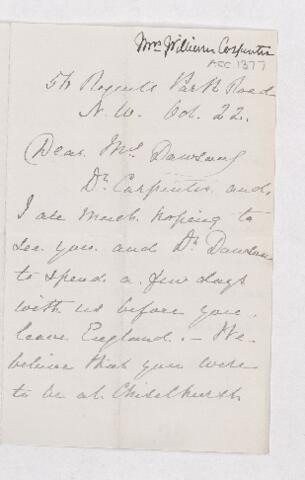 Mrs William Carpenter
ACC 1377
56 Regents Park Road
N.W. Oct. 22.
Dear Mrs Dawson
Dr Carpenter and
I are much hoping to
see you and Dr Dawson
to spend a few days
with us before you
leave England. - We
believe that you were
to be at Chiselhurst